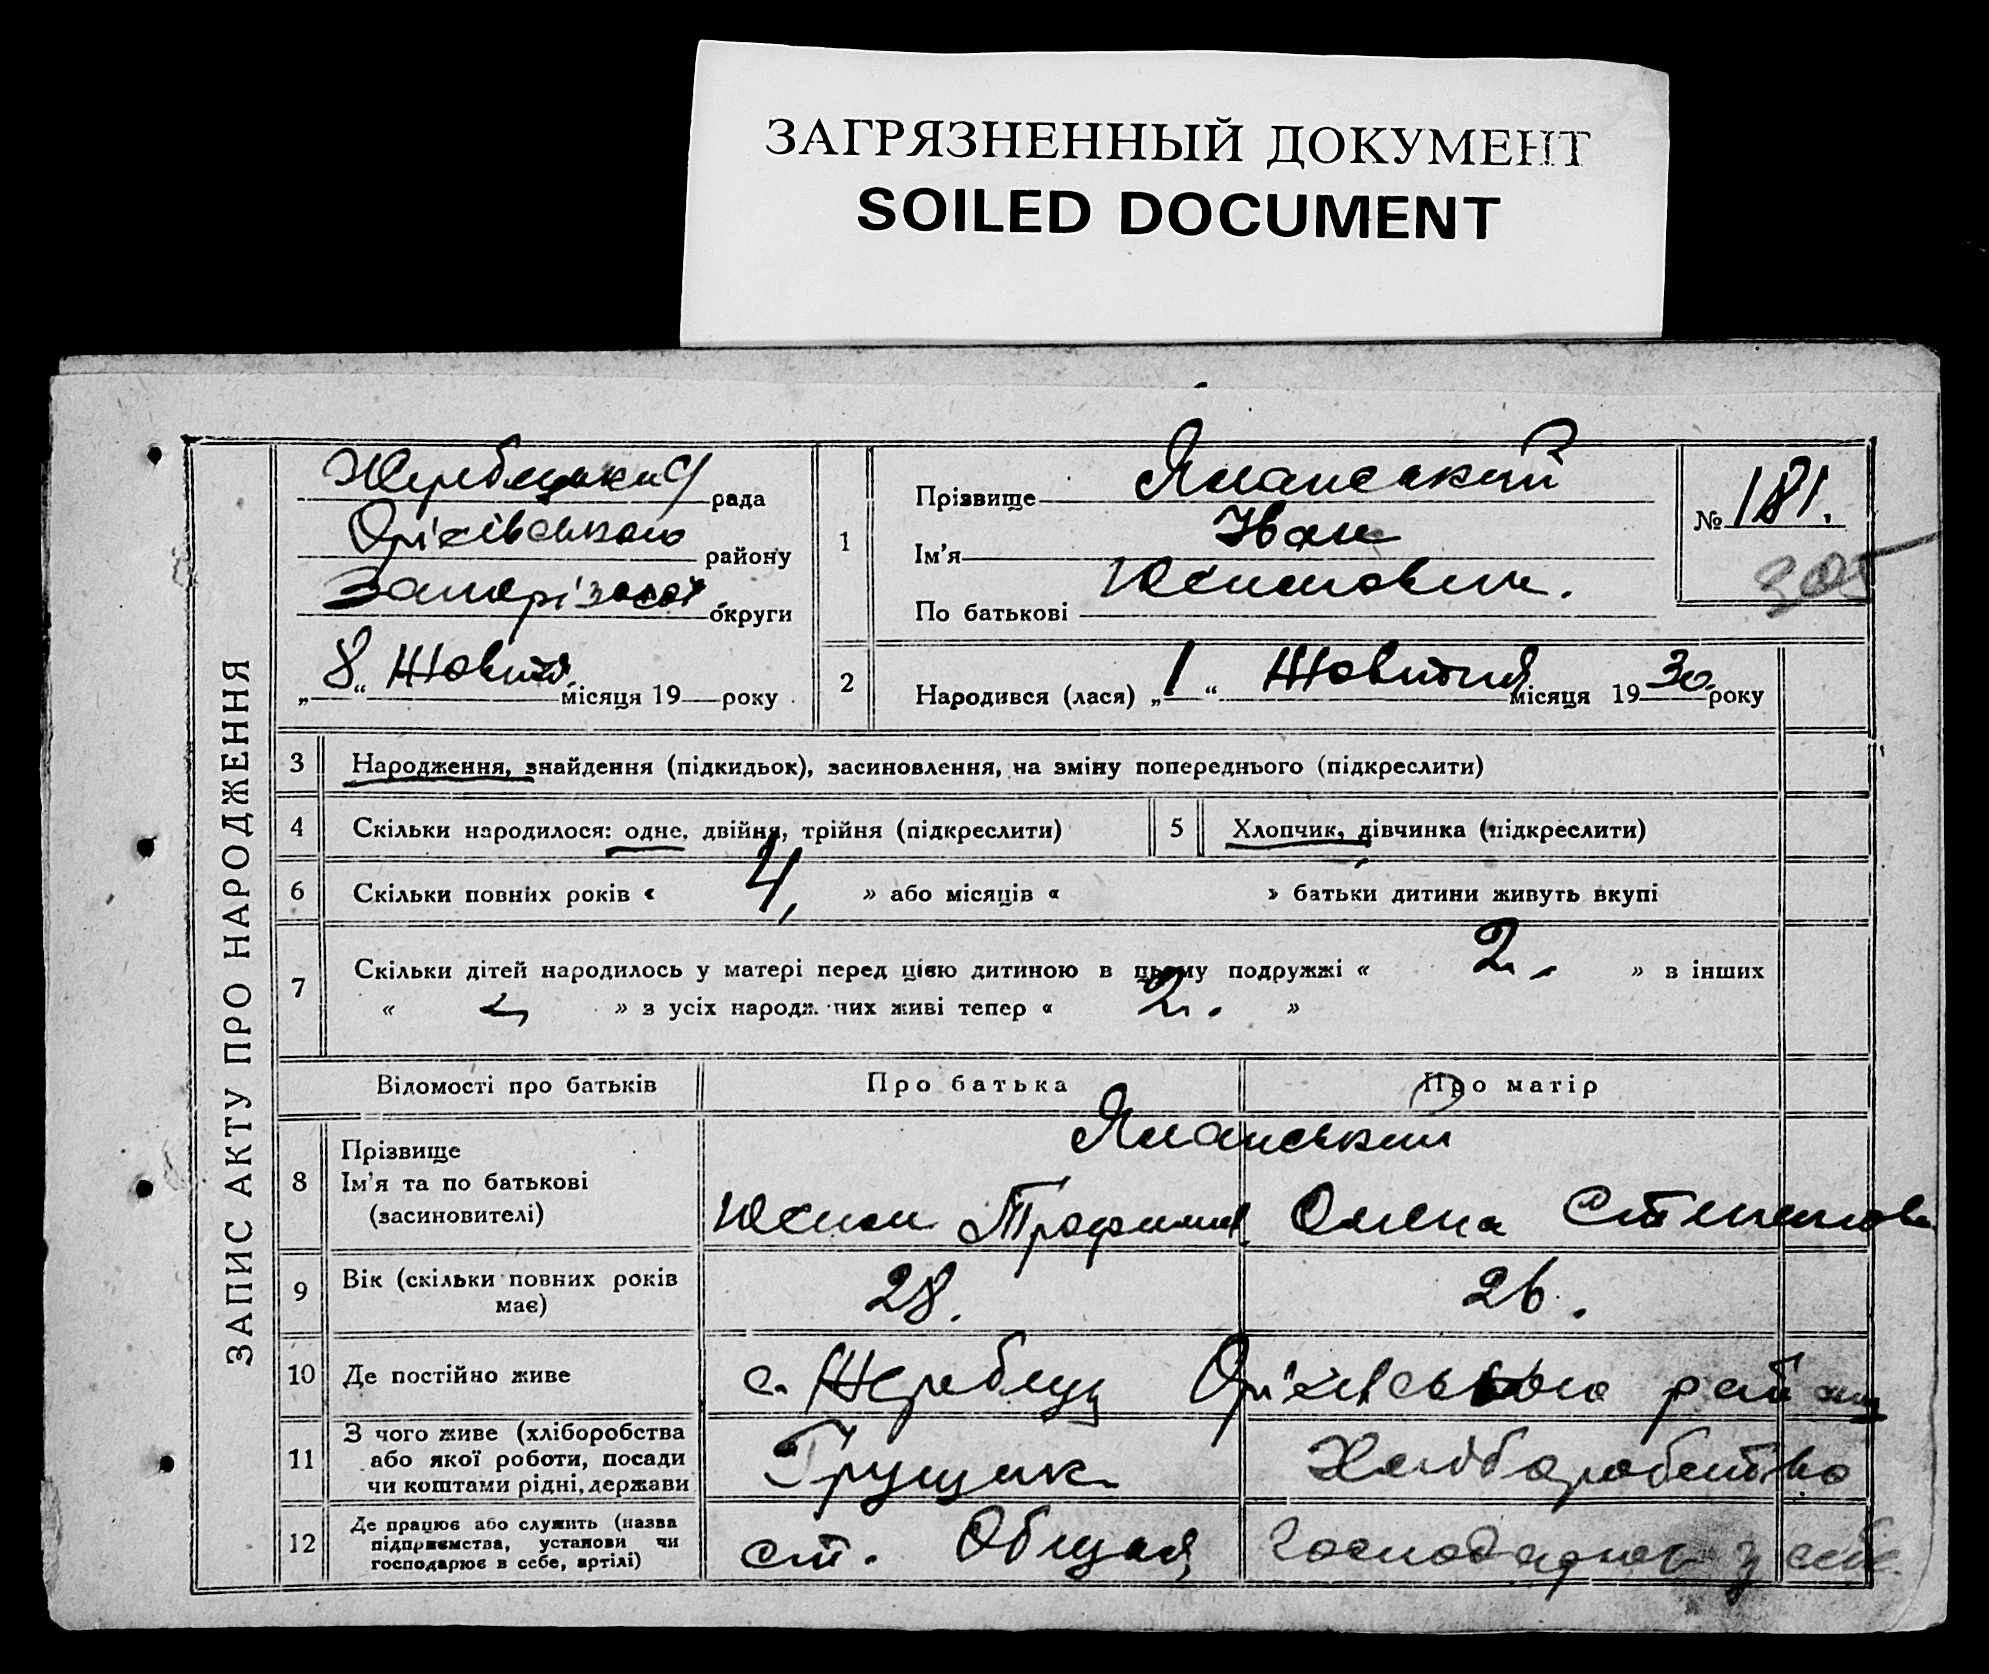 ЗАГРЯЗНЕННЫЙ ДОКУМЕНТ
SOILED DOCUMENT
ЗАПИС АКТУ ПРО НАРОДЖЕННЯ
рада
Оріхівського району
Запорізької округи
„8“ Жовтн. місяця 19 року
1
Прізвище
Ім'я Іван
По батькові
№ 181.
305
2
Народився (лася) „1“ Жовтня місяця 1930 року
3 Народження, знайдення (підкидьок), засиновлення, на зміну попереднього (підкреслити)
4 Скільки народилося: одне, двійня, трійня (підкреслити)
5 Хлопчик, дівчинка (підкреслити)
6 Скільки повних років « 4, » або місяців « » батьки дитини живуть вкупі
7 Скільки дітей народилось у матері перед цією дитиною в цьому подружжі « 2. » в інших
« » з усіх народж. них живі тепер « 2. »
Відомості про батьків
Про батька
Про матір
8 Прізвище
Ім'я та по батькові
(засиновителі)
Трофимов. Олена Степанов
9 Вік (скільки повних років
має)
28. 26.
10 Де постійно живе
с. Жеребець Оріхівського району
11 З чого живе (хліборобства
або якої роботи, посади
чи коштами рідні, держави
Грущик Хліборобство
12 Де працює або служить (назва
підприємства, установи чи
господарює в себе, артілі)
ст. Общая господарює у себе